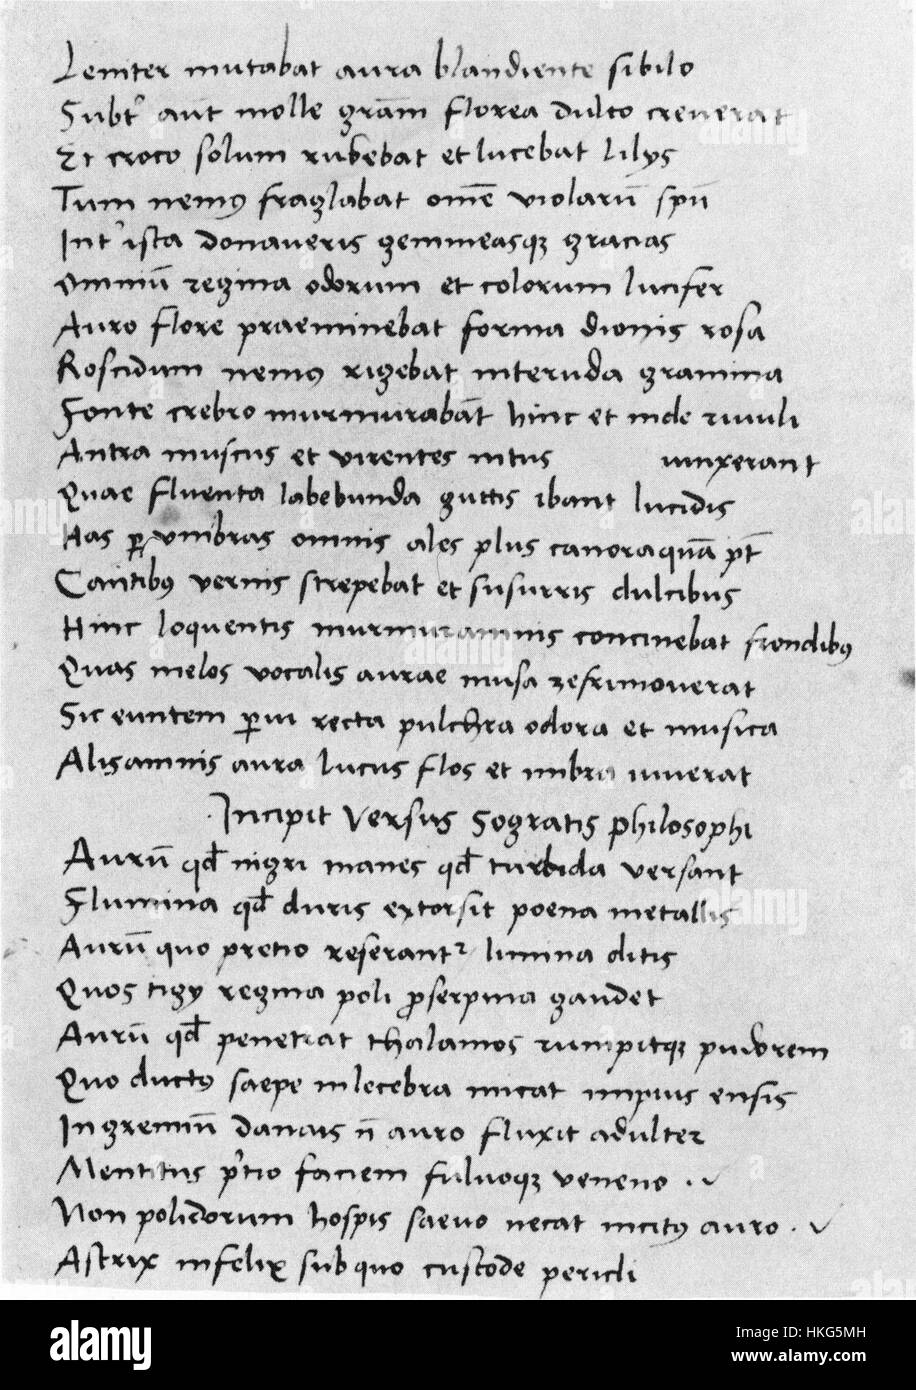 Leniter mutabat aura blandiente sibilo
Subt' aūt molle gram̄ florea dulco creverat
Et croco solum rubebat et lucebat lilys
Tum nemus fraglabat om̄e violarū spū
Int' ista donaveris gemmeasque gracias
omniū regina odorum et colorum lucifer
Auro flore praeminebat forma dionis rosa
Roscidum nemus rigebat interuda gramina
Fonte crebro murmurabāt hinc et inde rivuli
Antra muscus et virentes intus iunxerant
Quae fluenta labebunda guttis ibant lucidis
Has per umbras omnis ales plus canoraquā pt̄
Cantibus vernis strepebat et susurris dulcibus
Hinc loquentis murmuramnis concinebat frondibus
Quas melos vocalis aurae musa zefrimoverat
Sic euntem per vi recta pulchra odora et musica
Alisamnis aura lucus flos et umbra iuverat
Incipit Versus Sogratis philosophi
Aurū qd̄ nigri manes qd̄ turbida versant
Flumina qd̄ duris extorsit poena metallis
Aurū quo pretio reserantr lumina ditis
Quos tigy regina poli proserpina gaudet
Aurū qd̄ penetrat thalamos rumpitque pudorem
Quo ductus saepe inlecebra micat impius ensis
In gremiū danais n̄ auro fluxit adulter
Mentitus p'tio faciem fulvoque veneno
Non polidorum hospis saevo necat incitus auro
Astrix infelix sub quo custode pericli
alamy
Image ID: HKG5MH
www.alamy.com